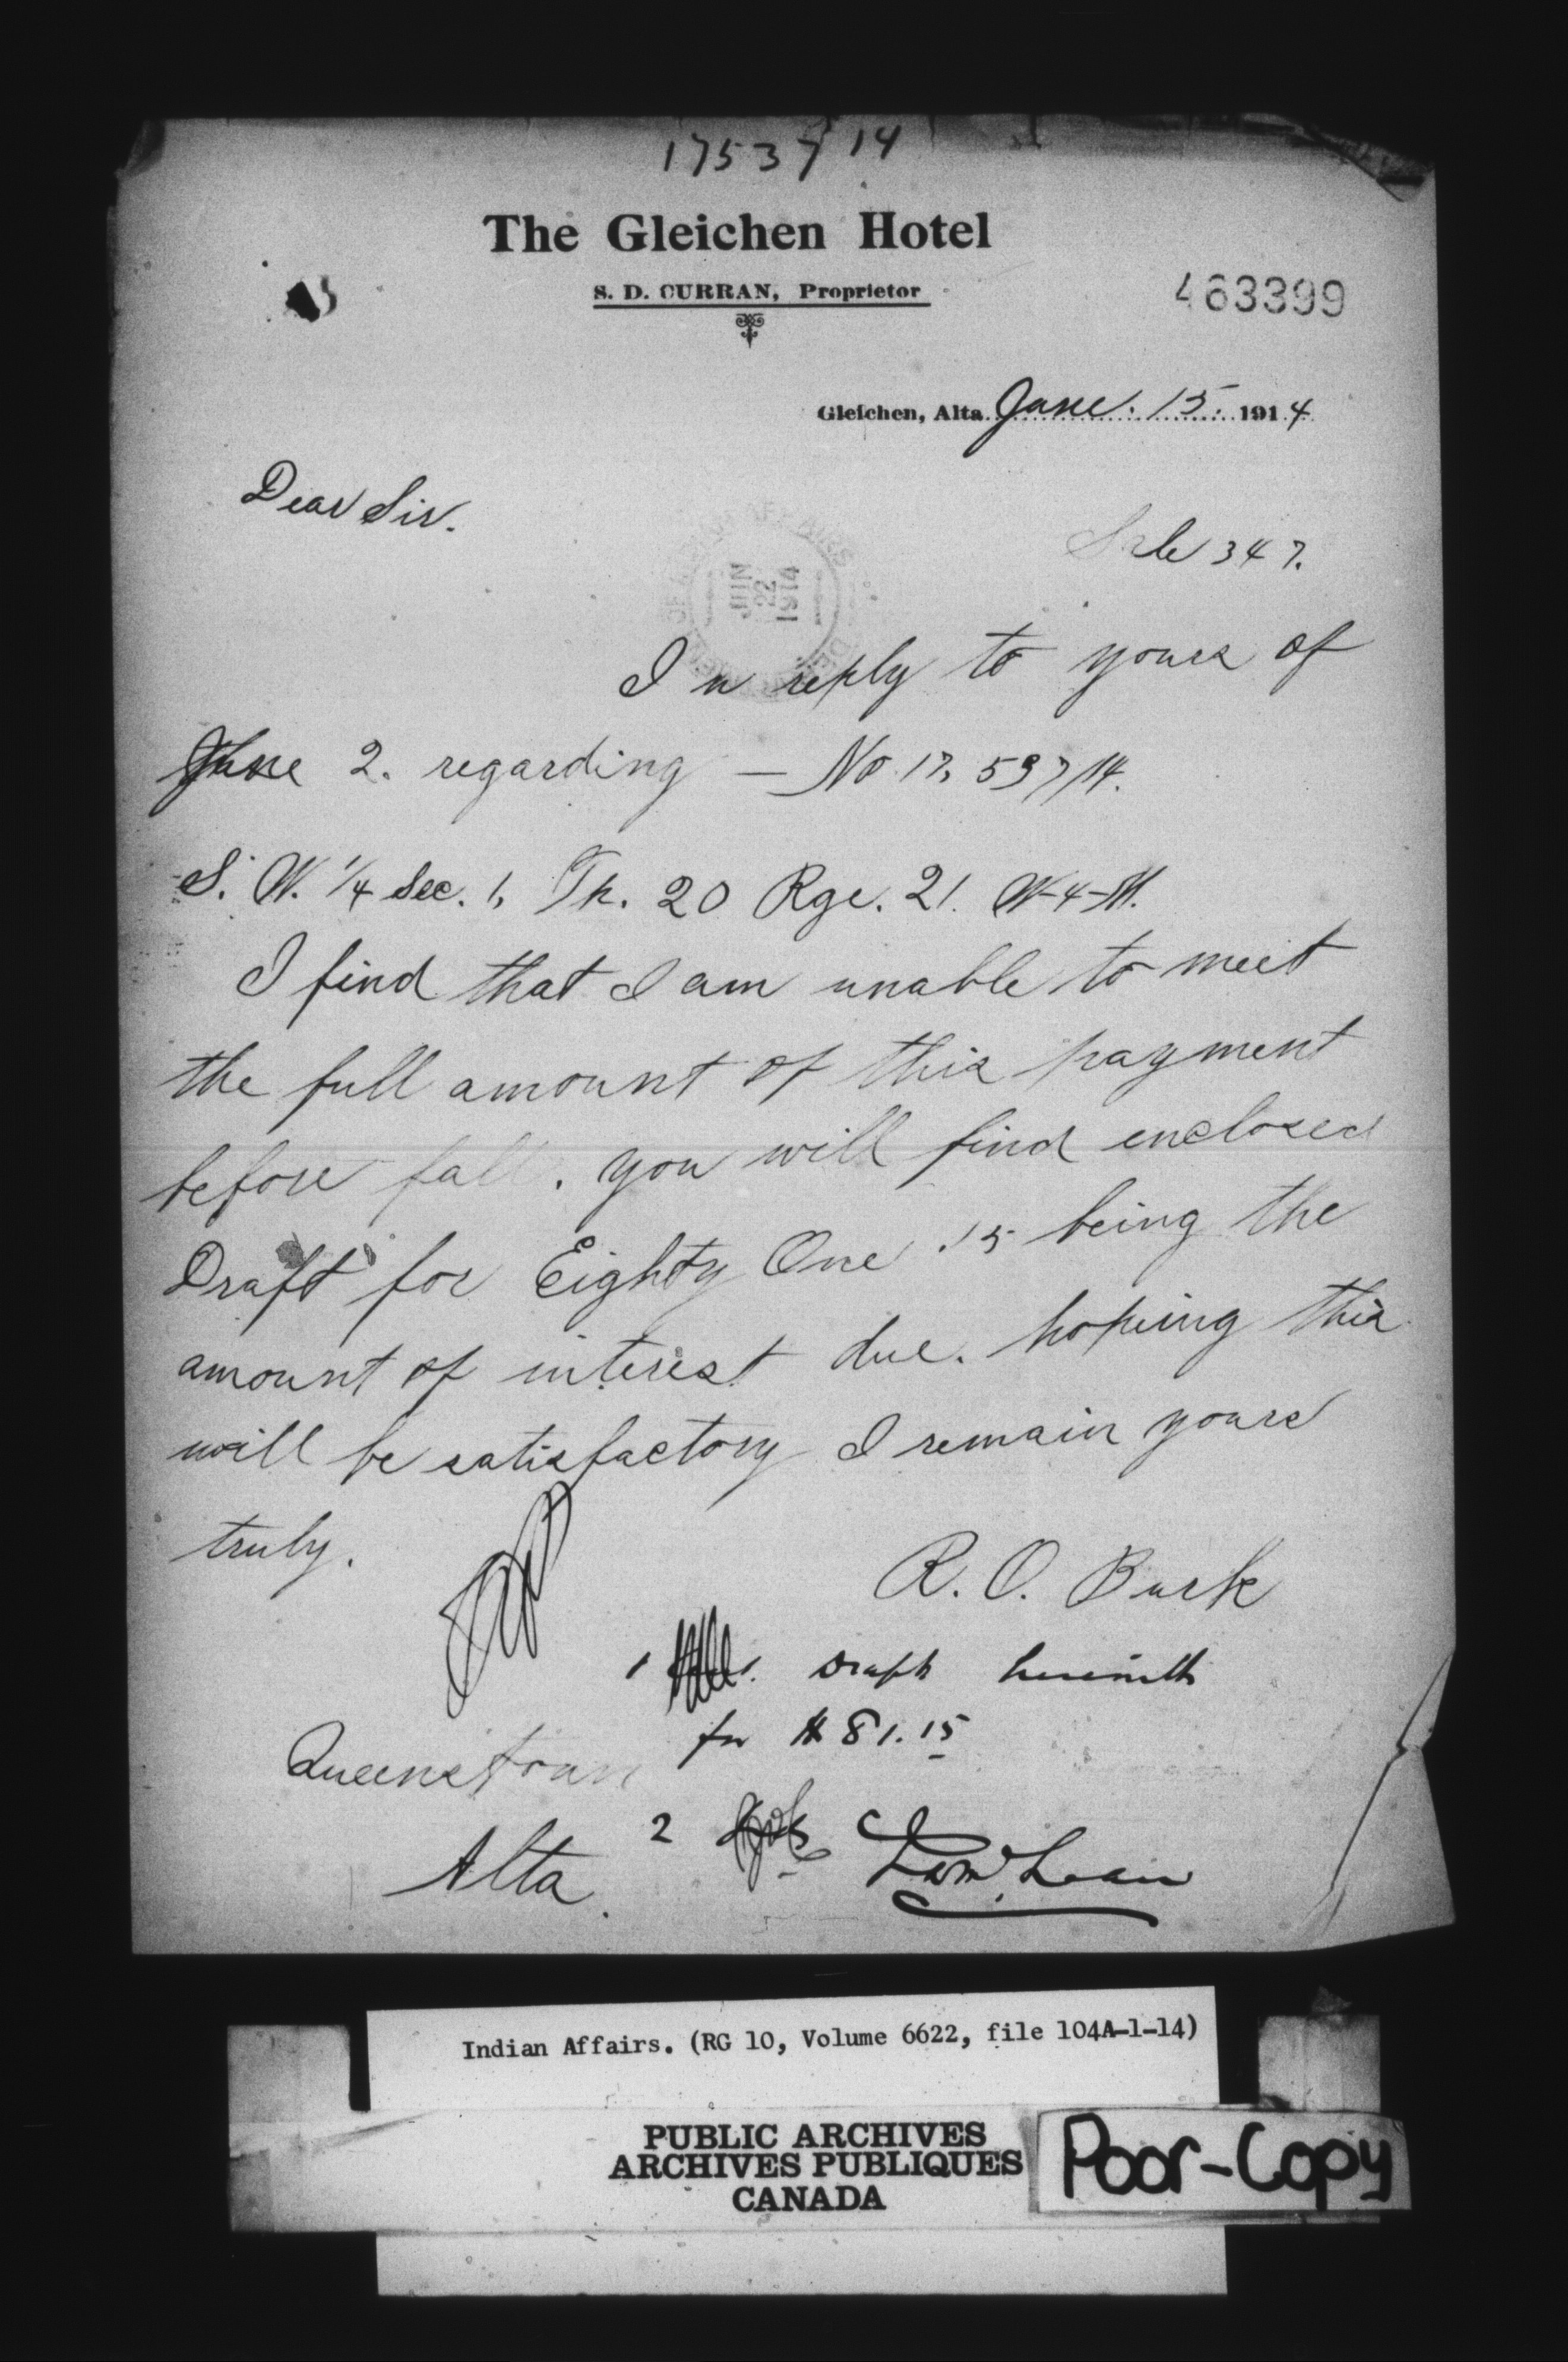 17537 14
The Gleichen Hotel
S. D. CURRAN, Proprietor
463399
Gleichen, Alta. June. 15. 1914
Dear Sir.
Sale 347.
JUN
22
1914
In reply to yours of
June 2. regarding — No 17,537/14.
S. W. 1/4 Sec. 1, Tp. 20 Rge. 21. W-4-M.
I find that I am unable to meet
the full amount of this payment
before fall. you will find enclosed
Draft for Eighty One .15 being the
amount of interest due. hoping this
will be satisfactory I remain yours
truly.
R. O. Burk
1 Draft herewith
for $81.15
Queenstown
Alta.
2
Indian Affairs. (RG 10, Volume 6622, file 104A-1-14)
PUBLIC ARCHIVES
ARCHIVES PUBLIQUES
CANADA
Poor-Copy